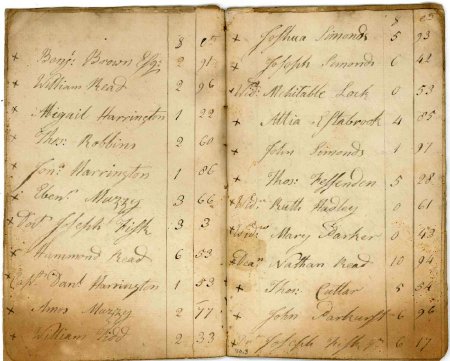 $ cts
x Benjn. Brown Esq. 2 91
x William Read 2 96
x Abigail Harrington 1 22
x Thos. Robbins 2 60
x Jona. Harrington 1 86
x Ebenr. Muzzy 3 66
x Doct. Joseph Fisk 3 3
x Hammond Read 6 53
Capt. Danl. Harrington 1 53
x Amos Muzzy 2 77
x William 2 33
$ cts
x Joshua Simonds 5 93
x Joseph Simonds 6 42
Wid. Mehitable Lock 0 53
x Attia Estabrook 4 85
x John Simonds 1 97
x Thos. Fessenden 5 28
Wid. Ruth Hadley 0 61
Wid. Mary Parker 0 43
Dea. Nathan Read 10 94
x Thos. Cutlar 5 54
x John Parkhurst 6 96
Joseph Fisk Jr. 6 17